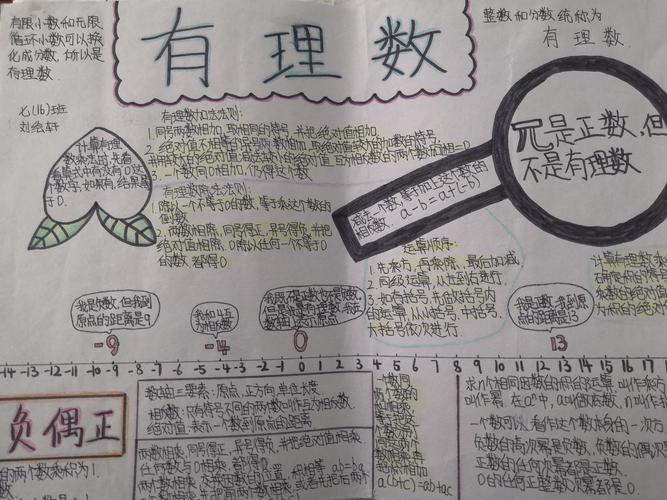 有限小数和无限
循环小数可以换
化成分数,所以是
有理数.
有理数
整数和分数统称为
有理数.
七(16)班
刘绘轩
计算有理
数乘法时,先看
看算式中有没有0这
个数字,如果有,结果属
于0.
有理数加法法则:
1.同号两数相加,取相同的符号,并把绝对值相加.
2.绝对值不相等的异号两数相加,取绝对值较大的加数的符号,
并用较大的绝对值减去较小的绝对值.互为相反数的两个数加和=0
3.一个数同0相加,仍得这个数.
有理数除法法则:
1.除以一个不等于0的数,等于乘这个数的
倒数.
2.两数相除,同号得正,异号得负,并把
绝对值相除.0除以任何一个不等于0
的数,都得0.
π是正数,但
不是有理数
减去一个数,等于加上这个数的
相反数.
a-b=a+(-b)
运算顺序:
1.先乘方,再乘除,最后加减
2.同级运算,从左到右进行.
3.如有括号,先做括号内
的运算,从小括号、中括号、
大括号依次进行.
计算有理数
我是负数,但我到
原点的距离是9
-9
我和4互
为相反数
-4
我既不是正数也不是负数,
0
我是正数,我到原
点的距离是13
13
-14 -13 -12 -11 -10 -9 -8 -7 -6 -5 -4 -3 -2 -1 0 1 2 3 4 5 6 7 8 9 10 11 12 13 14 15 16 17
负偶正
的两个数乘积为1.
数轴三要素:原点,正方向,单位长度.
相反数:只有符号不同的两个数叫作互为相反数.
绝对值:表示一个数到原点的距离
两数相乘,同号得正,异号得负,并把绝对值相乘
任何数与0相乘,都得0.
两数相乘,交换因数的位置,积相等 ab=ba
一个数同
两个数的
和相乘,
a(b+c)=ab+ac
求n个相同因数的积的运算,叫作乘方
叫作幂.在aⁿ中,a叫做底数,n叫作
一个数可以看作这个数本身的一次方
负数的奇次幂是负数,负数的偶次
正数的任何次幂都是正数.
0的任何正整数次幂都是0.